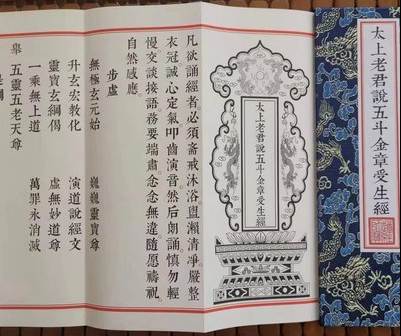 太上老君說五斗金章受生經
太上老君說五斗金章受生經
凡欲誦經者必須斋戒沐浴盥瀨清凈嚴整
衣冠誠心定氣叩齒演音然后朗誦慎勿輕
慢交談接語務要端肅念念無違隨愿禱祝
自然感應
步虛
無極玄元始 巍巍靈寶尊
升玄宏教化 演道說經文
靈寶玄綱偈 虛無妙道尊
一乘無上道 萬罪永消滅
舉 五靈五老天尊